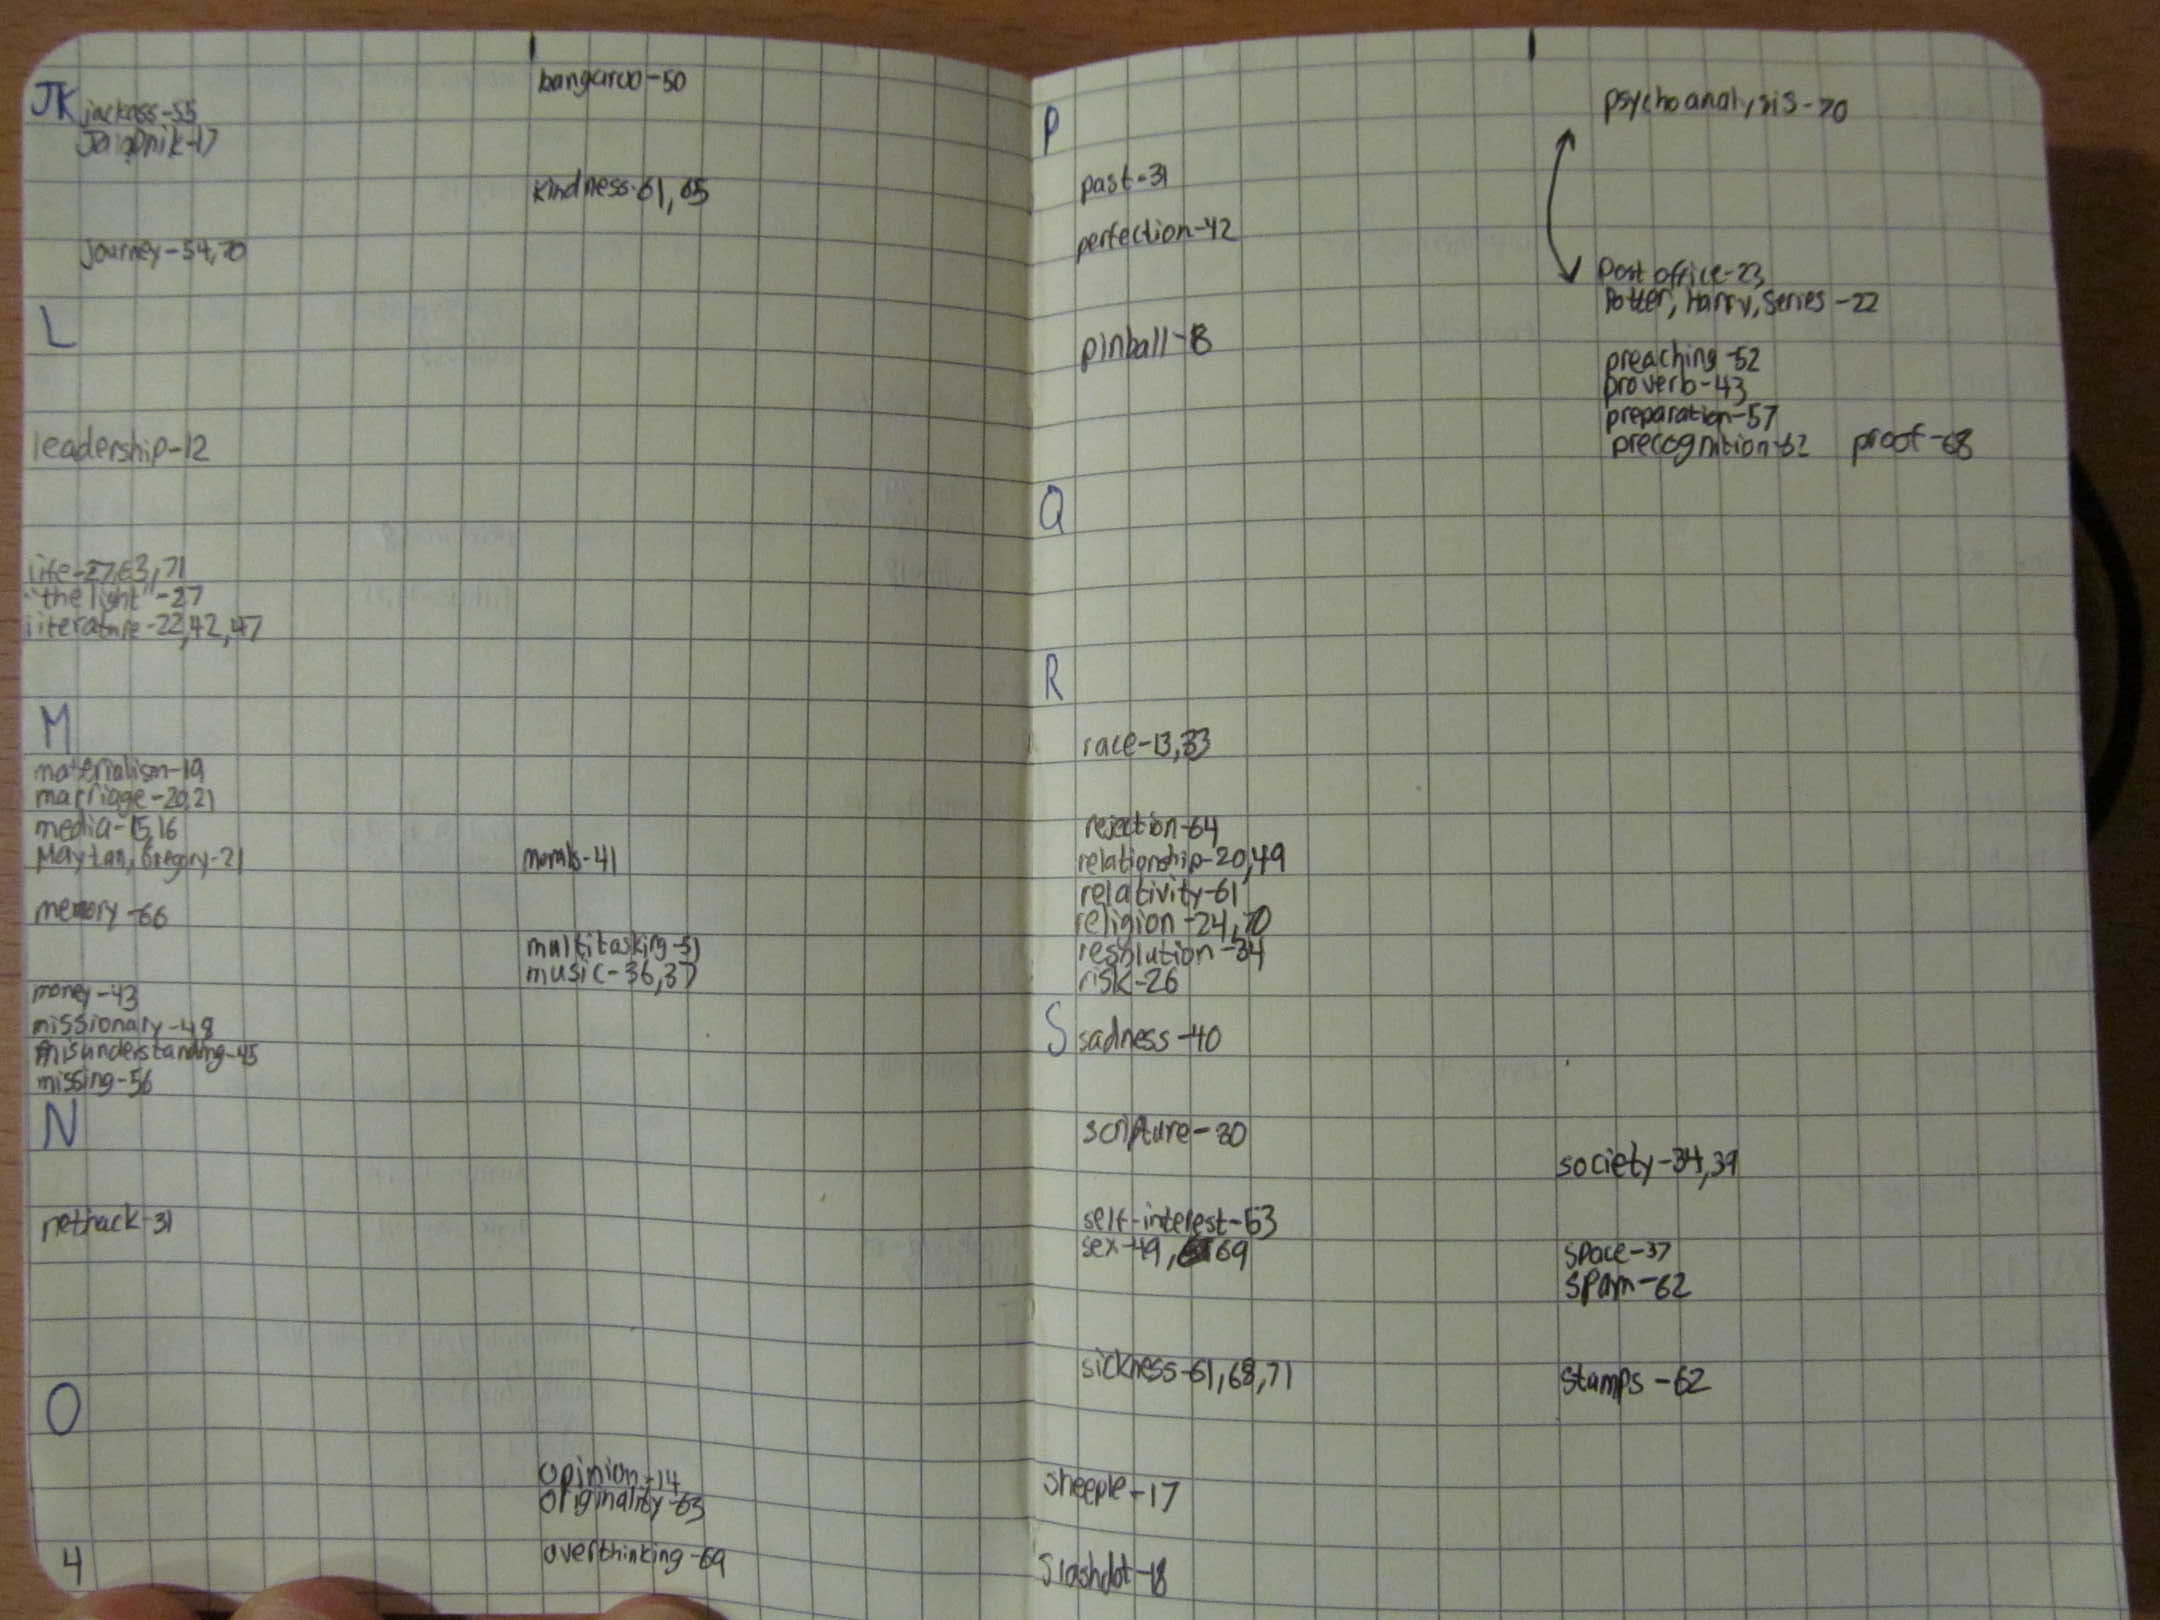 JK
jackass-55
Jaiopnik-17
Journey-54,70
kangaroo-50
kindness-61,65
L
leadership-12
life-27,63,71
"the light"-27
literature-22,42,47
M
materialism-19
marriage-20,21
media-15,16
Maytan, Gregory-21
memory-66
money-43
missionary-48
misunderstanding-45
missing-56
morals-41
multitasking-51
music-36,37
N
nethack-31
O
opinion-14
originality-63
overthinking-69
4
P
past-31
perfection-42
pinball-8
psychoanalysis-70
Post office-23
Potter, Harry, Series-22
preaching-52
proverb-43
preparation-57
precognition-62 proof-68
Q
R
race-13,33
rejection-64
relationship-20,49
relativity-61
religion-24,70
resolution-34
risk-26
S
sadness-40
scripture-30
self-interest-53
sex-49, 69
sickness-61,68,71
sheeple-17
Slashdot-18
society-34,39
space-37
spam-62
stamps-62